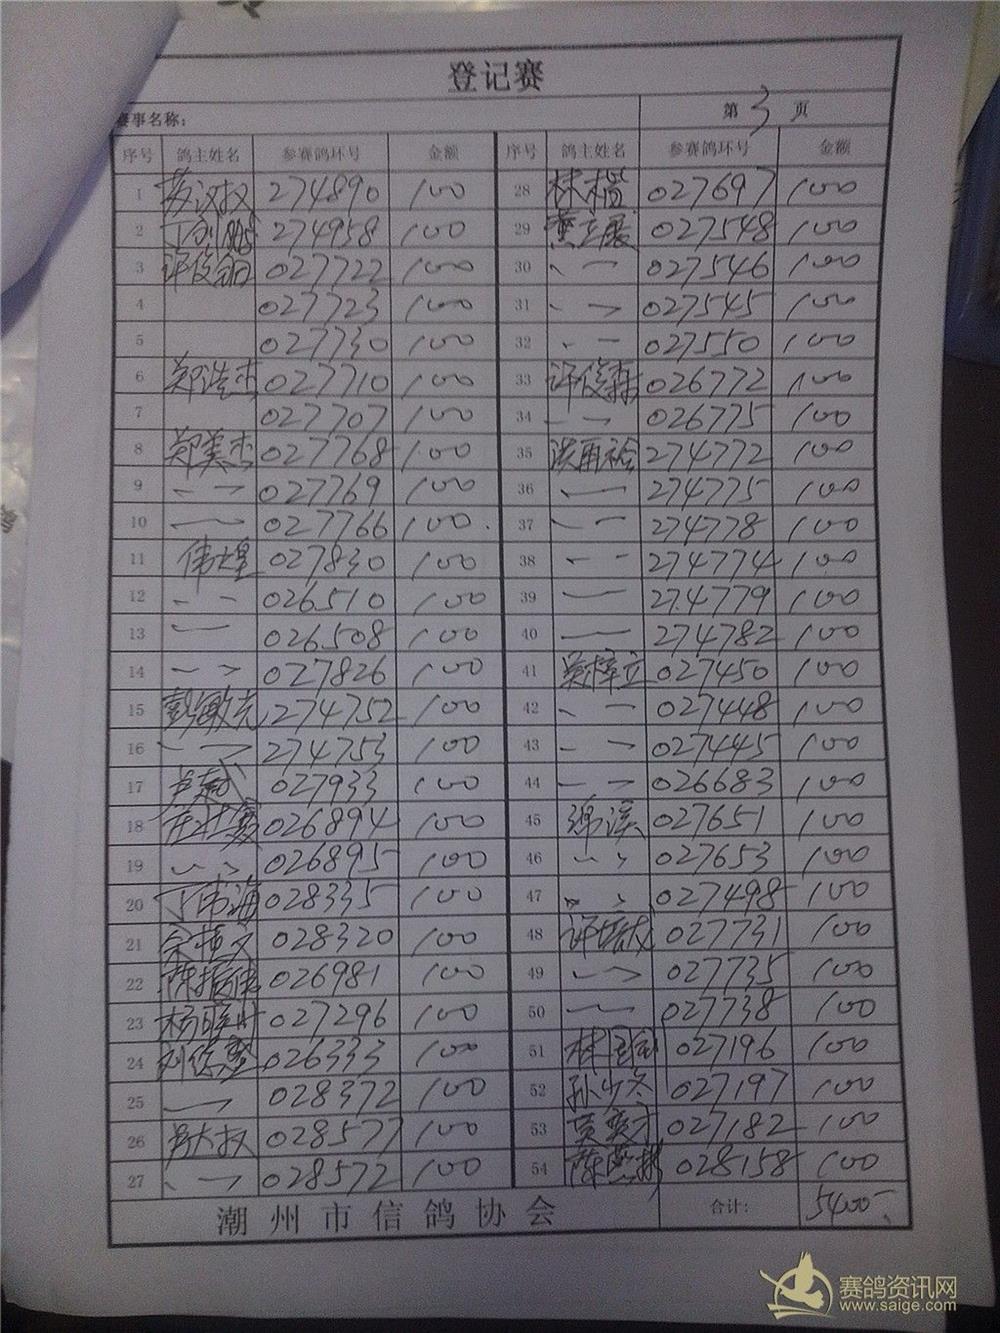 登记赛
赛事名称: 第3页
序号 鸽主姓名 参赛鸽环号 金额 序号 鸽主姓名 参赛鸽环号 金额
1 274890 100 28 林楷 027697 100
2 274958 100 29 027548 100
3 许俊 027722 100 30 027546 100
4 027723 100 31 027545 100
5 027730 100 32 027550 100
6 郑浩杰 027710 100 33 许俊森 026772 100
7 027707 100 34 026775 100
8 郑美杰 027768 100 35 274772 100
9 027769 100 36 274775 100
10 027766 100 37 274778 100
11 伟煌 027830 100 38 274774 100
12 026510 100 39 274779 100
13 026508 100 40 274782 100
14 027826 100 41 027450 100
15 274752 100 42 027448 100
16 274753 100 43 027445 100
17 027933 100 44 026683 100
18 026894 100 45 027651 100
19 026895 100 46 027653 100
20 丁海 028335 100 47 027498 100
21 028320 100 48 027731 100
22 陈振 026981 100 49 027735 100
23 杨 027296 100 50 027738 100
24 刘 026333 100 51 林 027196 100
25 028372 100 52 孙少 027197 100
26 028577 100 53 027182 100
27 028572 100 54 陈 028158 100
潮州市信鸽协会 合计: 5400
赛鸽资讯网
www.saige.com